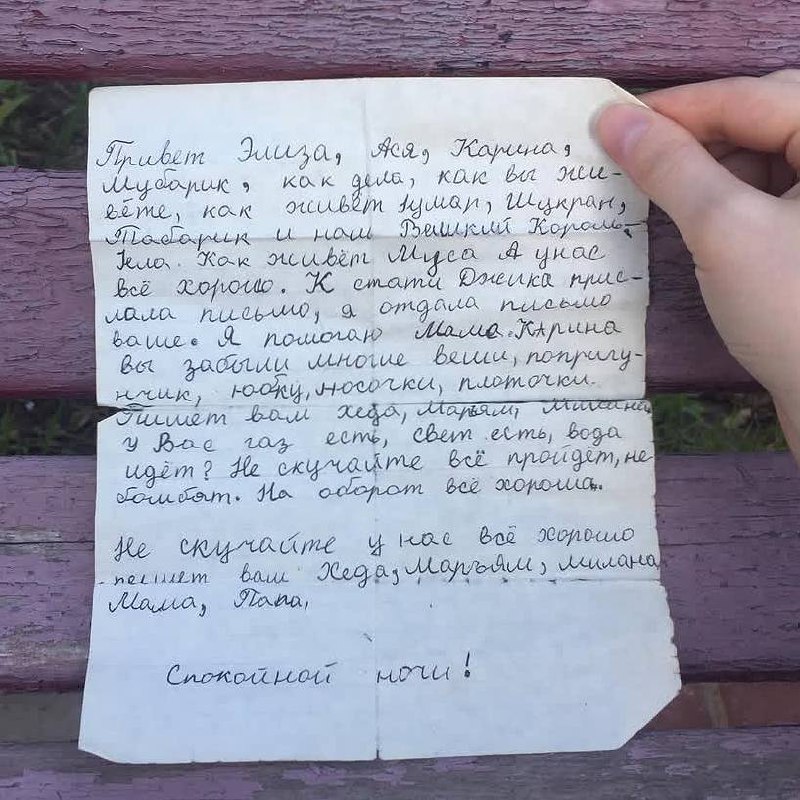 Привет Элиза, Ася, Карина,
Мубарик, как дела, как вы жи-
вёте, как живёт Iумар, Шукран,
Табарик и наш Великий Король,
Iела. Как живёт Муса А у нас
всё хорошо. К стати Джика прис-
лала письмо, я отдала письмо
ваше. Я помогаю Мама. Карина
вы забыли многие веши, попригу-
нчик, юбку, носочки, платочки.
Пишет вам Хеда, Марьям, Милана
у Вас газ есть, свет есть, вода
идёт? Не скучайте всё пройдёт, не
бомбят. На оборот всё хорошо.
Не скучайте у нас всё хорошо
пешет вам Хеда, Марьям, Милана
Мама, Папа,
Спокойной ночи!